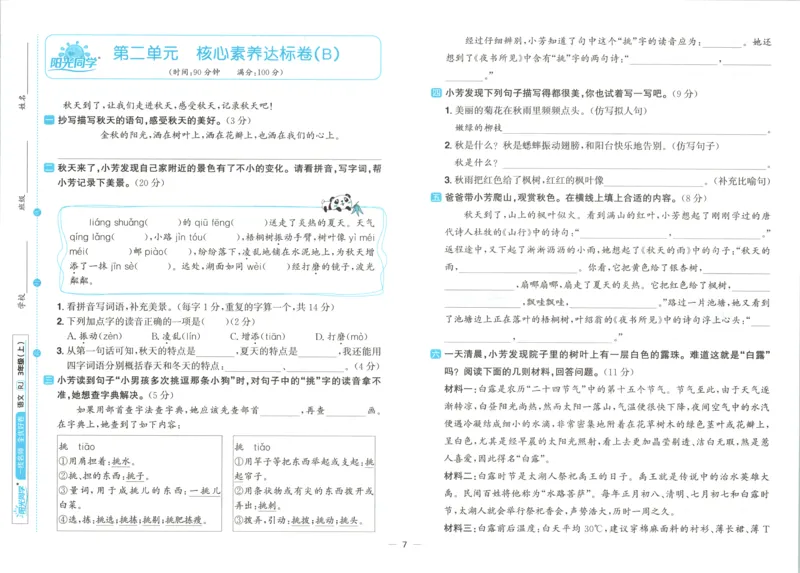 阳光同学
第二单元 核心素养达标卷(B)
(时间:90分钟 满分:100分)
秋天到了,让我们走进秋天,感受秋天,记录秋天吧!
一 抄写描写秋天的语句,感受秋天的美好。(3分)
金秋的阳光,洒在树叶上,洒在花瓣上,也洒在我们的心上。
二 秋天来了,小芳发现自己家附近的景色有了不小的变化。请看拼音,写字词,帮
小芳记录下美景。(20分)
liáng shuǎng( )的 qiū fēng( )送走了炎热的夏天。天气
qíng lǎng( ),小路 jìn tóu( ),梧桐树振动手臂,树叶像 yì méi
méi( )邮 piào( ),纷纷落下,凌乱地铺在水泥地上,为秋天增
添了一抹 jīn sè( )。远处,湖面如同 wèi( )经打磨的镜子,波光
粼粼。
1. 看拼音写词语,补充美景。(每字1分,重复的字算一个,共14分)
2. 下列加点字的读音正确的一项是( )(2分)
A. 振动(zèn) B. 凌乱(lín) C. 增添(tiān) D. 打磨(mò)
3. 从第一句话可知,秋天的特点是________,夏天的特点是________,我还能用
四字词语分别概括春天和冬天的特点:________、________。(4分)
三 小芳读到句子“小男孩多次挑逗那条小狗”时,对句子中的“挑”字的读音拿不
准,她想查字典解决。(5分)
如果用部首查字法查字典,她应该先查部首________,再查________画。
在字典上,她查到了如下内容:
挑 tiāo
①用肩担着:挑水。
②挑、担的东西:挑子。
③量词,用于成挑儿的东西:一挑儿
白菜。
④选,拣:挑选;挑拣;挑剔;挑肥拣瘦。
挑 tiǎo
①用竿子等把东西举起或支起:挑
起帘子。
②用条状物或有尖的东西拨开或
弄出:挑刺。
③拨弄,引动:挑拨;挑动;挑头。
经过仔细辨别,小芳知道了句中这个“挑”字的读音应为:________。她还
想到了《夜书所见》中含有“挑”字的两句诗:“________,
________。”
四 小芳发现下列句子描写得都很美,你也试着写一写吧。(9分)
1. 美丽的菊花在秋雨里频频点头。(仿写拟人句)
嫩绿的柳枝________。
2. 秋是什么?秋是蟋蟀振动翅膀,和阳台快乐地告别。(仿写句子)
秋是什么?________。
3. 秋雨把红色给了枫树,红红的枫叶像________。(补充比喻句)
五 爸爸带小芳爬山,观赏秋色。在横线上填上合适的内容。(8分)
秋天到了,山上的枫叶似火。看到满山的红叶,小芳想起了刚刚学过的唐
代诗人杜牧的《山行》中的诗句:“________,________。”
返程途中,又下起了淅淅沥沥的小雨,她想起了《秋天的雨》中的句子:“秋天的
雨,________。你看,它把黄色给了银杏树,________
________,扇哪扇哪,扇走了夏天的炎热。它把红色给了枫树,________
________,飘哇飘哇,________。”路过一片池塘,她又看到
了池塘边上正在落叶的梧桐树,叶绍翁的《夜书所见》中的诗句浮上心头:“____
________,________。”
六 一天清晨,小芳发现院子里的树叶上有一层白色的露珠。难道这就是“白露”
吗?阅读下面的几则材料,回答问题。(11分)
材料一:白露是农历“二十四节气”中的第十五个节气。节气至此,由于天气逐
渐转凉,白昼阳光尚热,然而太阳一落山,气温便很快下降,夜间空气中的水汽
便遇冷凝结成细小的水滴,非常密集地附着在花草树木的绿色茎叶或花瓣上,
呈白色,尤其是经早晨的太阳光照射,看上去更加晶莹剔透、洁白无瑕,煞是惹
人喜爱,因此得名“白露”。
材料二:白露时节是太湖人祭祀禹王的日子。禹王就是传说中的治水英雄大
禹。民间百姓将他称为“水路菩萨”。每年正月初八、清明、七月初七和白露时
节,太湖人就会举行祭祀香会,声势浩大,历时一周之久。
材料三:白露前后温度:白天平均30℃,建议穿棉麻面料的衬衫、薄长裙、薄T
— 7 —
姓名
班级
学校
语文 RJ 3年级(上)
阳光同学